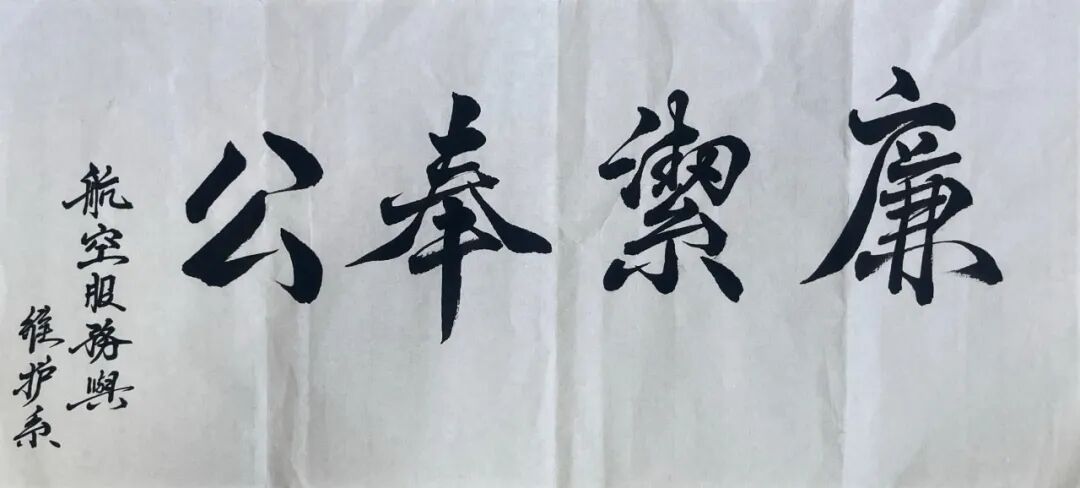 廉潔奉公
航空服務與
維护系